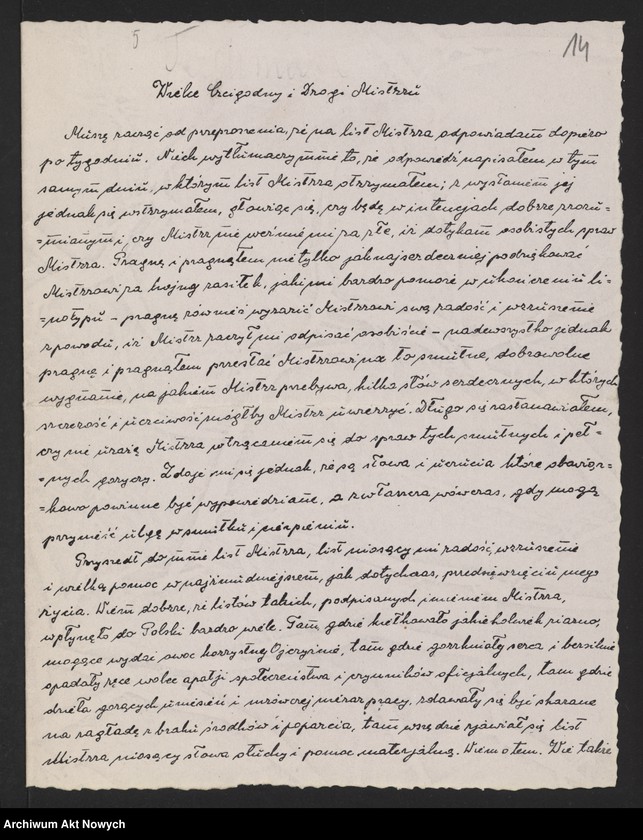 5
14
Wielce Czcigodny i Drogi Mistrzu
Muszę zacząć od przeproszenia, że na list Mistrza odpowiadam dopiero
po tygodniu. Niech wytłumaczy mnie to, że odpowiedź napisałem w tym
samym dniu, w którym list Mistrza otrzymałem; z wysłaniem jej
jednak się wstrzymałem, głowiąc się, czy będę w intencjach dobrze zrozu=
=mianym i, czy Mistrz nie weźmie mi za złe, iż dotykam osobistych spraw
Mistrza. Pragnę i pragnąłem nie tylko jaknajserdeczniej podziękować
Mistrzowi za hojny zasiłek, jaki mi bardzo pomoże w ukończeniu li=
=notypu – pragnę również wyrazić Mistrzowi swą radość i wzruszenie
z powodu, iż Mistrz raczył mi odpisać osobiście – nadewszystko jednak
pragnę i pragnąłem przesłać Mistrzowi na to smutne, dobrowolne
wygnanie, na jakiem Mistrz przebywa, kilka słów serdecznych, w których
szczerość i uczciwość mógłby Mistrz uwierzyć. Długo się zastanawiałem,
czy nie urażę Mistrza wtrącaniem się do spraw tych smutnych i peł=
=nych goryczy. Zdaje mi się jednak, że są słowa i uczucia które obowiąz=
=kowo powinne być wypowiedziane, a zwłaszcza wówczas, gdy mogą
przynieść ulgę w smutku i cierpieniu.
Przyszedł do mnie list Mistrza, list niosący mi radość, wzruszenie
i wielką pomoc w najżmudniejszem, jak dotychczas, przedsięwzięciu mego
życia. Wiem dobrze, że listów takich, podpisanych imieniem Mistrza,
wpłynęło do Polski bardzo wiele. Tam, gdzie kiełkowało jakiekolwiek ziarno,
mogące wydać owoc korzystny Ojczyźnie, tam gdzie gorzkniały serca i bezsilnie
opadały ręce wobec apatji społeczeństwa i czynników oficjalnych, tam gdzie
dzieła gorących uniesień i mrówczej nieraz pracy, zdawały się być skazane
na zagładę z braku środków i poparcia, tam wszędzie zjawiał się list
Mistrza niosący słowa otuchy i pomoc materjalną. Wiem o tem. Wie także
Archiwum Akt Nowych